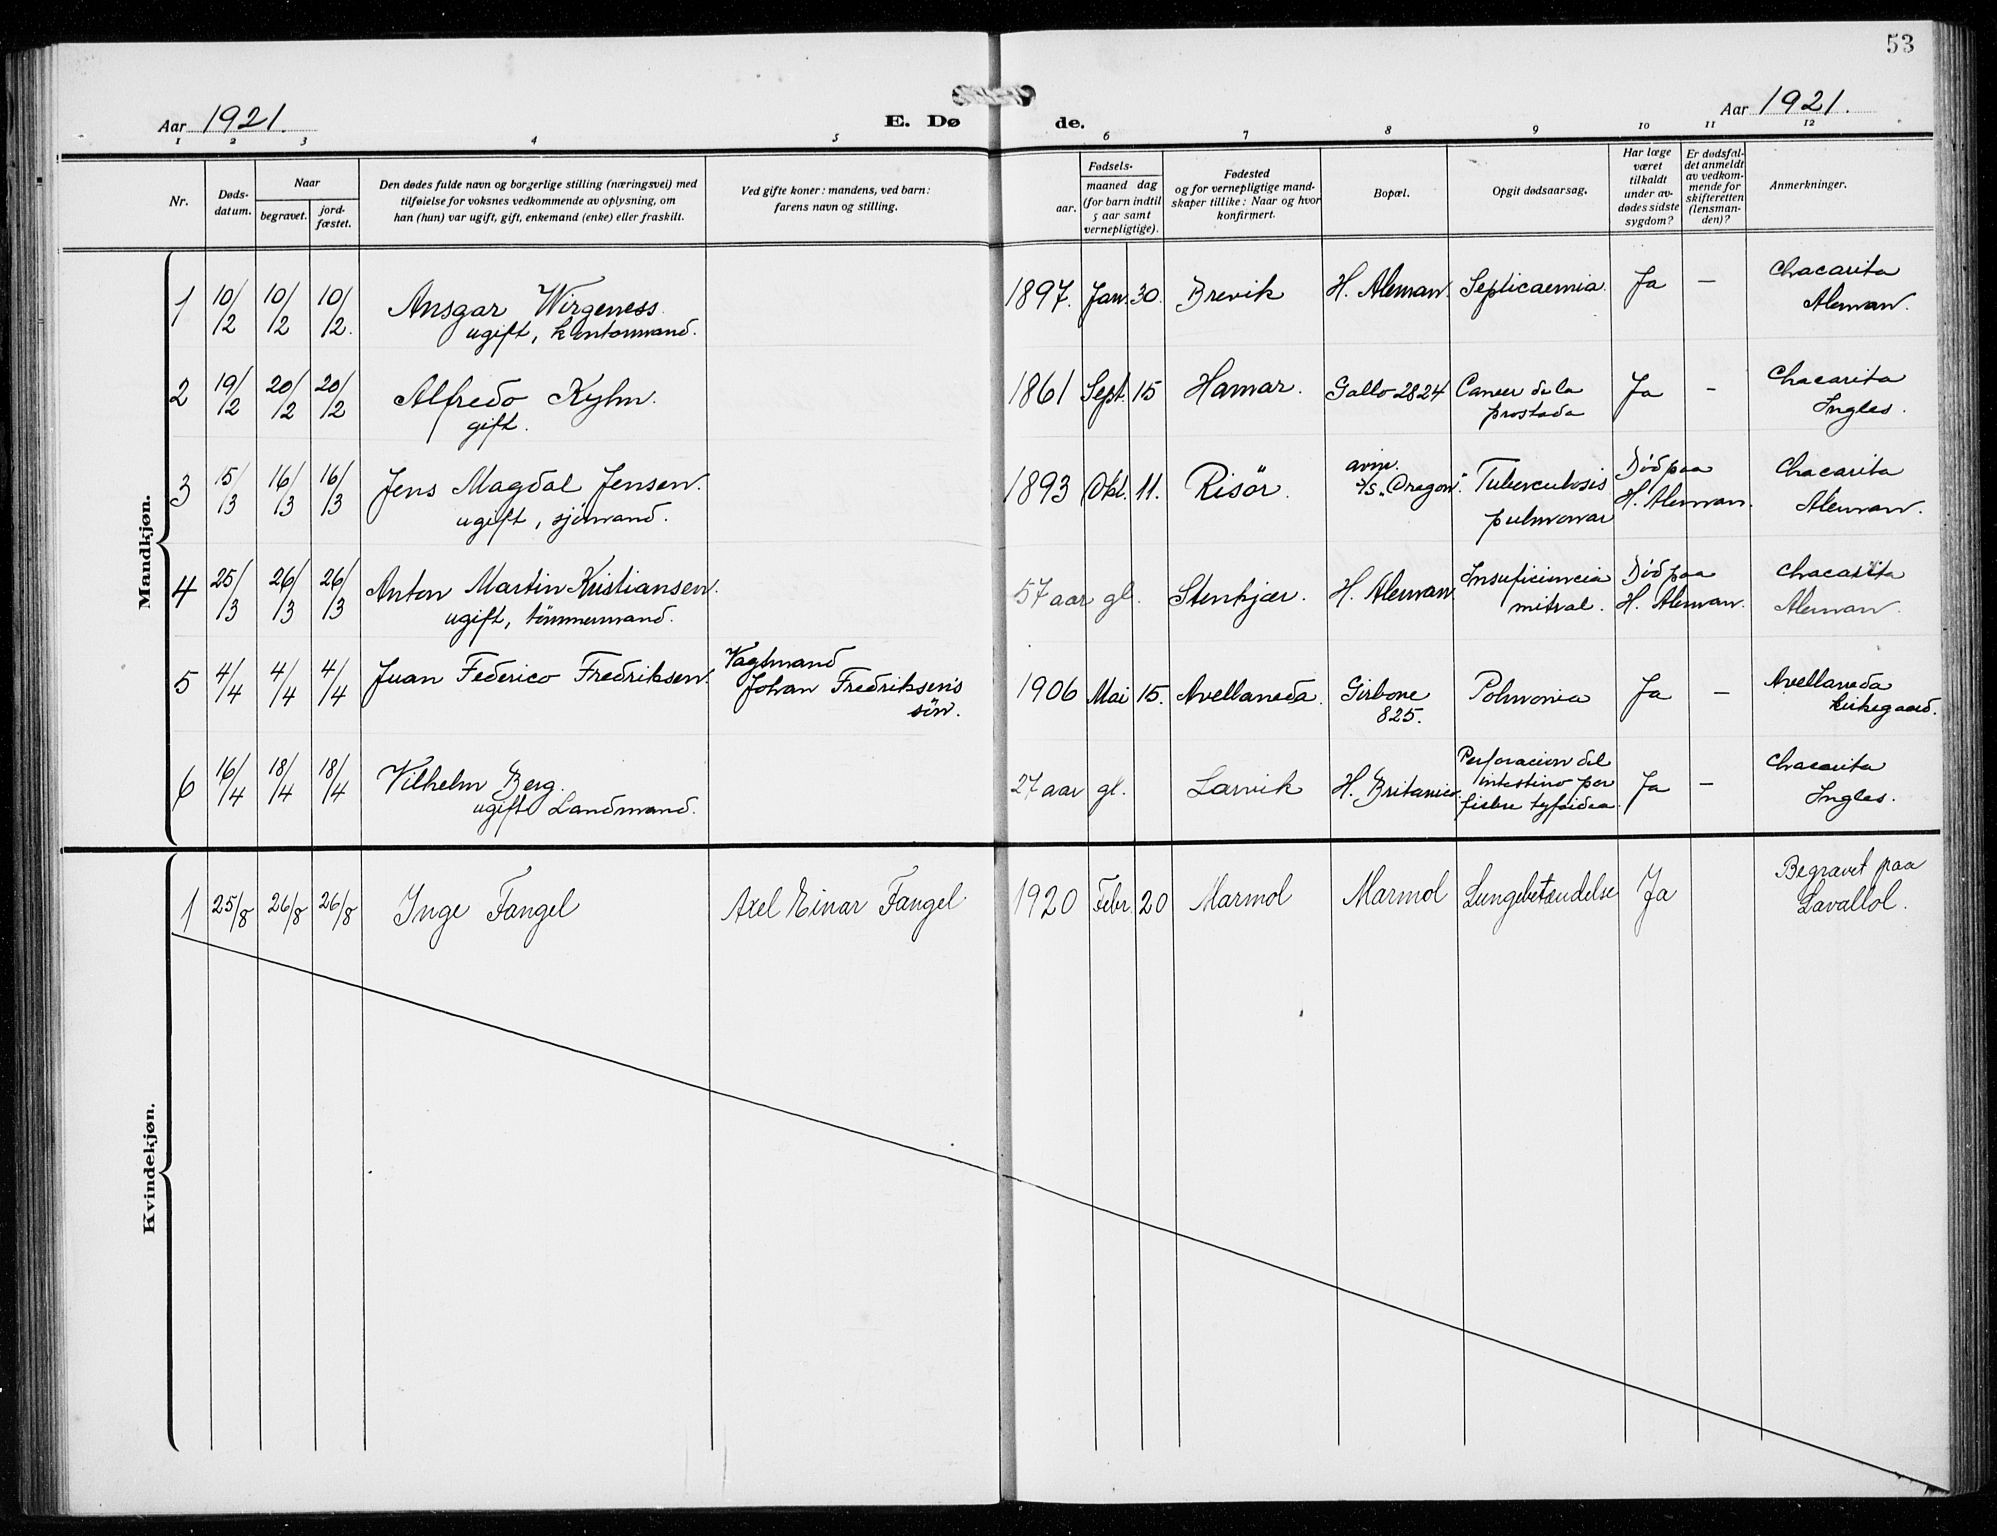 53
Aar 1921.
E. Døde.
Aar 1921.
1 2 3 4 5 6 7 8 9 10 11 12
Nr.
Døds-
datum.
Naar
begravet.
jord-
fæstet.
Den dødes fulde navn og borgerlige stilling (næringsvei) med
tilføielse for voksnes vedkommende av oplysning, om
han (hun) var ugift, gift, enkemand (enke) eller fraskilt.
Ved gifte koner: mandens, ved barn:
farens navn og stilling.
Fødsels-
aar.
maaned dag
(for barn indtil
5 aar samt
vernepligtige).
Fødested
og for vernepligtige mand-
skaper tillike: Naar og hvor
konfirmert.
Bopæl.
Opgit dødsaarsag.
Har læge
været
tilkaldt
under av-
dødes sidste
sygdom?
Er dødsfal-
det anmeldt
av vedkom-
mende for
skifteretten
(lensman-
den)?
Anmerkninger.
Mandkjøn.
1 10/2 10/2 10/2. Ansgar Wirgeness. 1897. Jan. 30. Brevik H. Aleman. Septicaemia. Ja — Chacarita
ugift, kontormand. Aleman.
2 19/2 20/2 20/2 Alfredo Kyhn. 1861 Sept. 15 Hamar. Gallo 2824 Cancer de la Ja - Chacarita
gift. prostada Ingles.
3 15/3 16/3 16/3 Jens Magdal Jensen. 1893 Okt. 11. Risör. S/S. "Oregon". Tuberculosis Död paa Chacarita
ugift, sjömand. pulmonar H. Aleman. Aleman.
4 25/3 26/3 26/3 Anton Martin Kristiansen. 57 aar gl. Stenkjær. H. Aleman. Insuficiencia Död paa Chacarita
ugift, tömmermand. mitral. H. Aleman. Aleman.
5 4/4 4/4 4/4 Juan Federico Fredriksen. Vagtmand
Johan Fredriksens 1906 Mai 15. Avellaneda. Girbone Polmonia Ja — Avellaneda
sön. 825. kirkegaard.
6 16/4 18/4 18/4 Vilhelm Berg. 27 aar gl. Larvik H. Britanico. Perforacion del Ja — Chacarita
ugift Landmand. intestino por Ingles.
fiebre tyfoidea.
Kvindekjøn.
1 25/8 26/8 26/8 Inge Fangel Axel Einar Fangel 1920 Febr. 20 Marmol Marmol Lungebetændelse Ja Begravet paa
Lavallol.